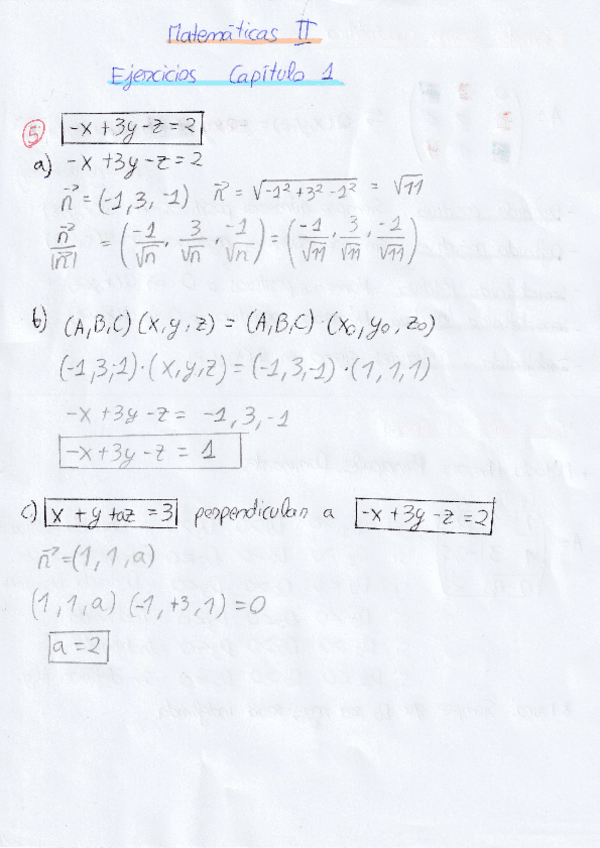 Matemáticas II
Ejercicios Capítulo 1
5 -x + 3y - z = 2
a) -x + 3y - z = 2
n⃗ = (-1, 3, -1) n⃗ = √-1² + 3² - 1² = √11
n⃗/|n⃗| = (-1/√n, 3/√n, -1/√n) = (-1/√11, 3/√11, -1/√11)
b) (A, B, C) (x, y, z) = (A, B, C) · (x₀, y₀, z₀)
(-1, 3, 1) · (x, y, z) = (-1, 3, -1) · (1, 1, 1)
-x + 3y - z = -1, 3, -1
-x + 3y - z = 1
c) x + y + az = 3 perpendicular a -x + 3y - z = 2
n⃗ = (1, 1, a)
(1, 1, a) (-1, +3, 1) = 0
a = 2